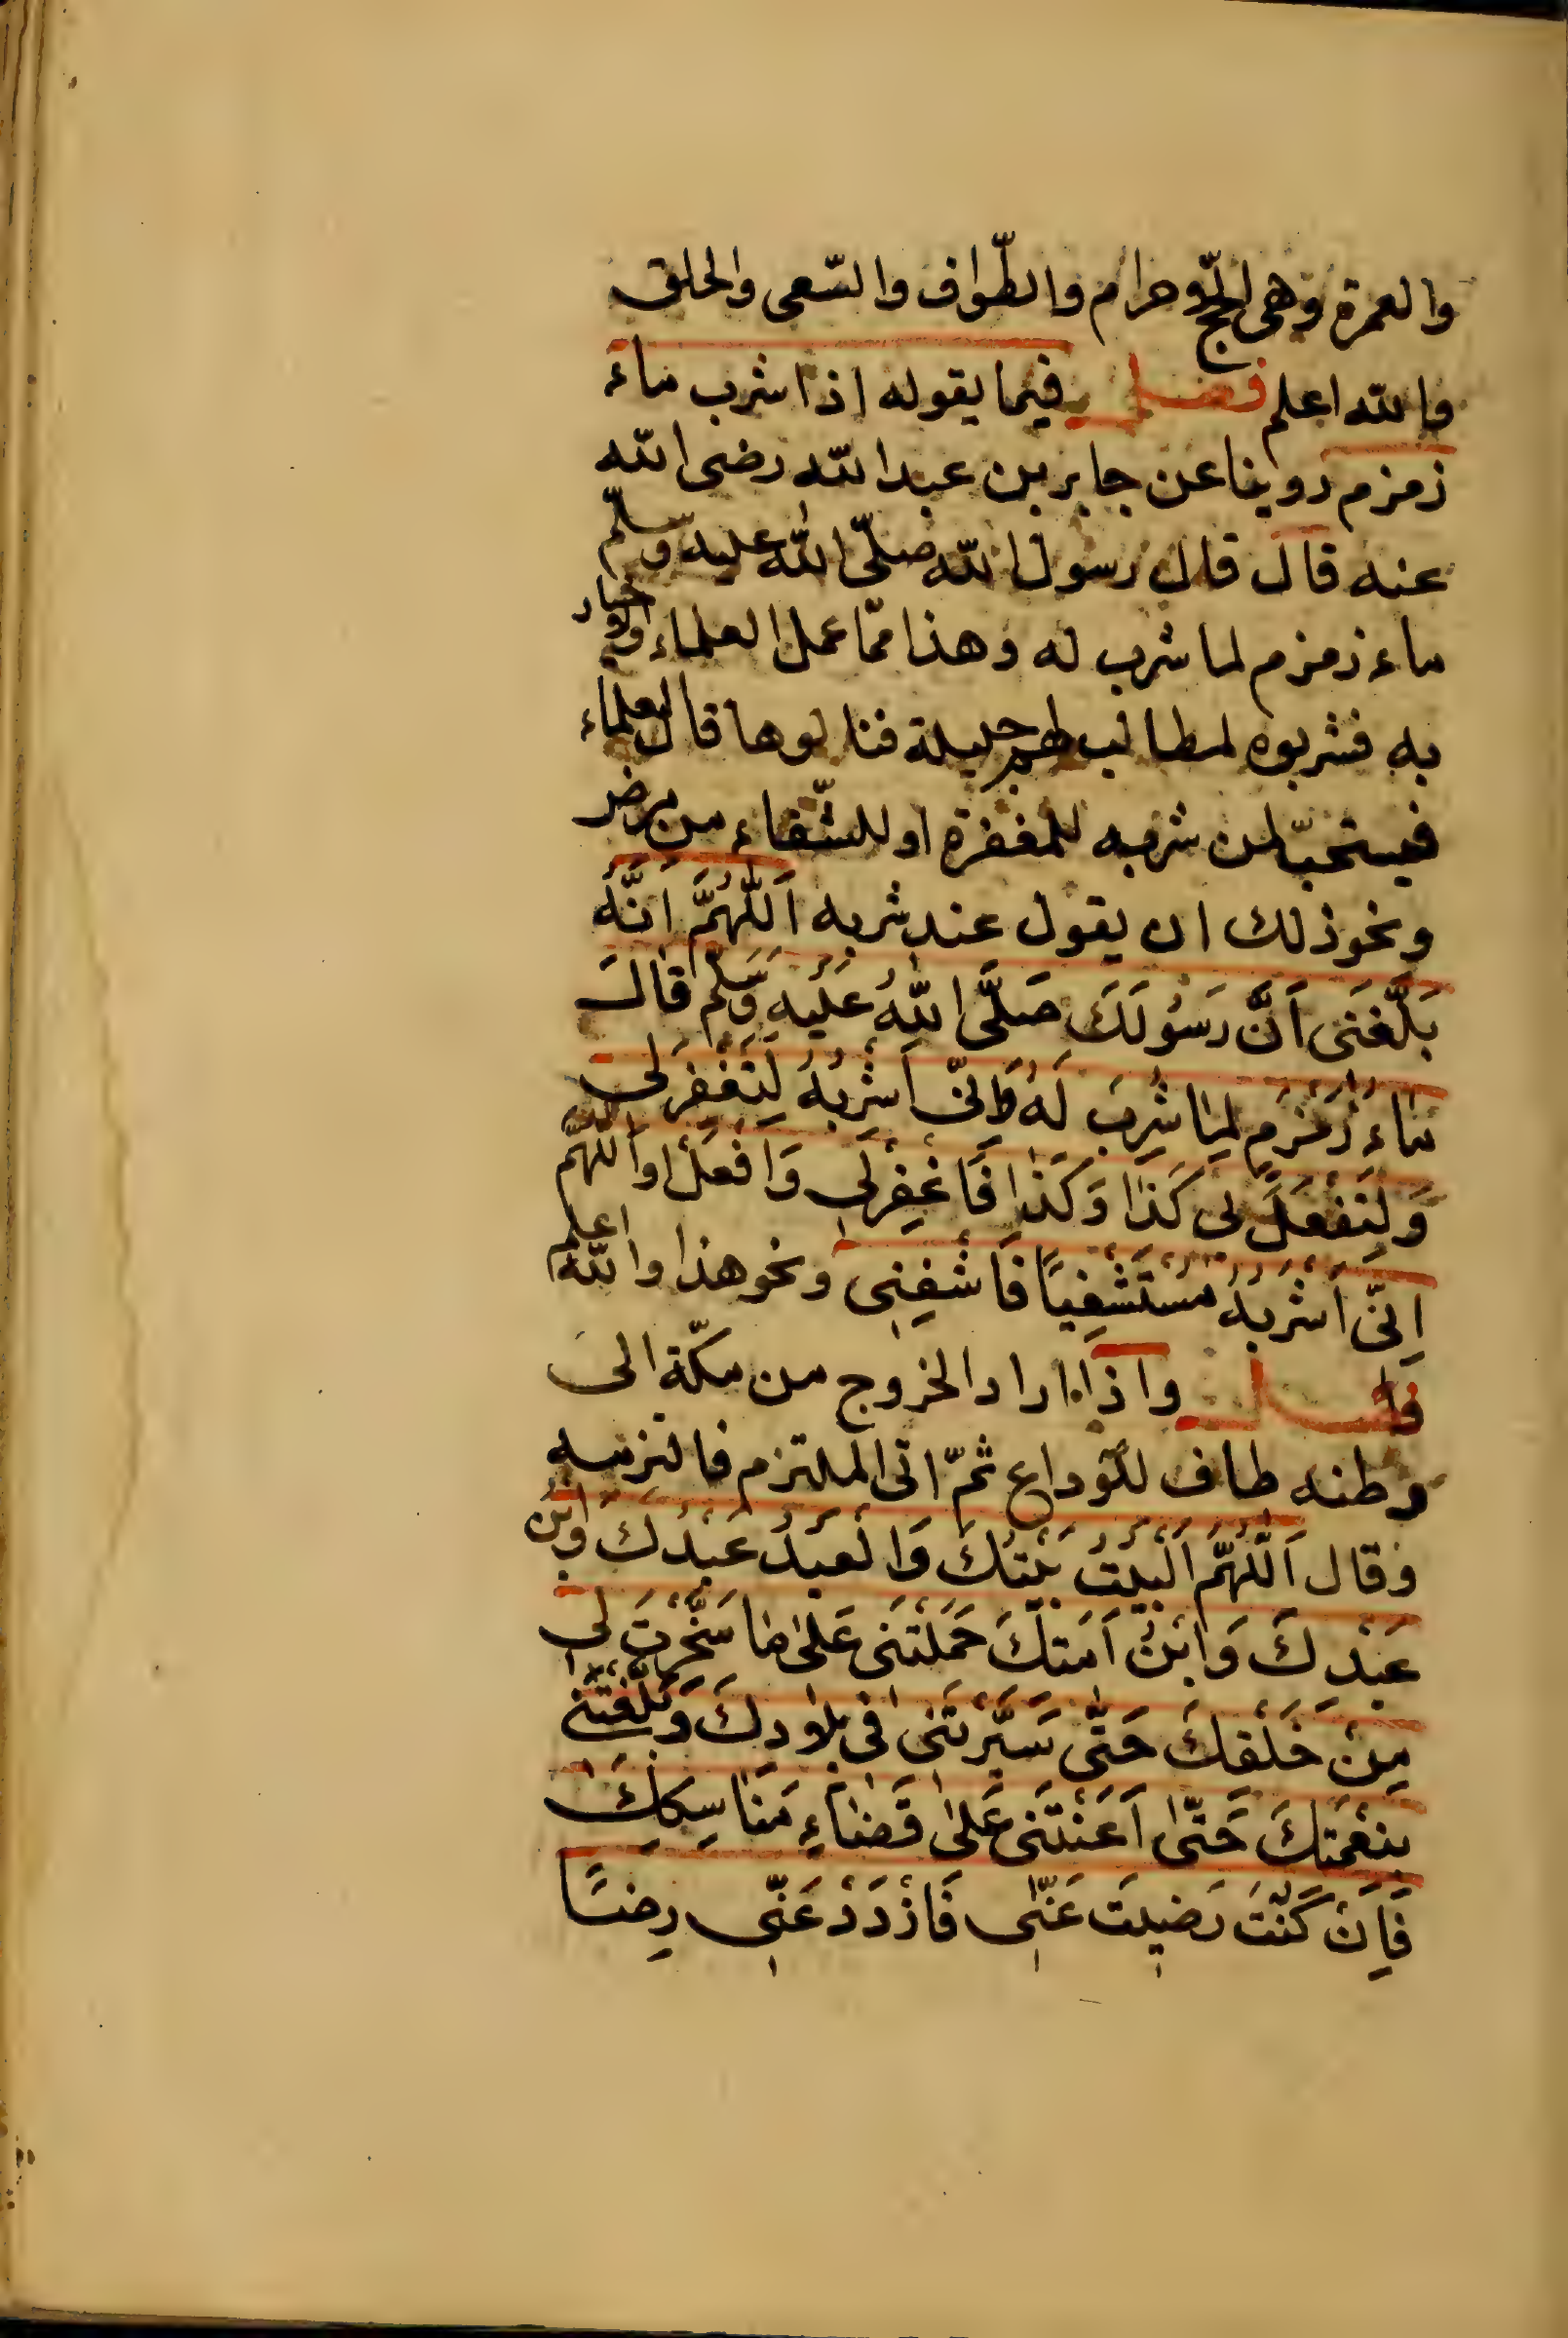 والعمرة وهى الحجّ وحرام والطّواف والسّعى والحلق
والله اعلم فصل فيما يقوله اذا شرب ماء
زمزم روينا عن جابر بن عبد الله رضى الله
عنه قال قال رسول الله صلّى الله عليه وسلّم
ماء زمزم لما شرب له وهذا ممّا عمل العلماء والاخيار
به فشربوه لمطالب لهم جليلة فنالوها قال العلماء
فيستحبّ لمن شربه للمغفرة او للشّفاء من مرض
ونحو ذلك ان يقول عند شربه اَللّٰهُمَّ اَنَّهُ
بَلَّغَنَى اَنَّ رَسُولَكَ صَلَّى اللّٰهُ عَلَيْهِ وَسَلَّم قَالَ
مَاءُ زَمْزَمِ لِمَا شُرِبَ لَهُ وَانّى اَشْرِبُهُ لِتَغْفِرَلى
وَلِتَفْعَلَ لى كَذَا وَكَذَا فَاغْفِرْلى وَافْعَلْ او اللّٰهُمَّ
اِنّى اَشْرَبُهُ مُسْتَشْفِيًا فَاشْفِنِى ونحو هذا والله اعلم
فصل واذا اراد الخروج من مكّة الى
وطنه طاف للوداع ثمّ اتى الملتزم فالتزمه
وقال اَللّٰهُمَّ اَلْبَيْتُ بَيْتُكَ وَالْعَبْدُ عَبْدُكَ وَابْنُ
عَبْدِكَ وَابْنُ اَمَتِكَ حَمَلْتَنى عَلىٰ مٰا سَخَّرْتَ لى
مِنْ خَلْقِكَ حَتّٰى سَيَّرْتَنى فى بِلَادِكَ وَبَلَّغْتَنى
بِنِعْمَتِكَ حَتّٰى اَعَنْتَنى عَلىٰ قَضٰاءِ مَنٰاسِكِكَ
فَاِنْ كُنْتَ رَضِيتَ عَنّى فَازْدَدْ عَنّى رِضًا